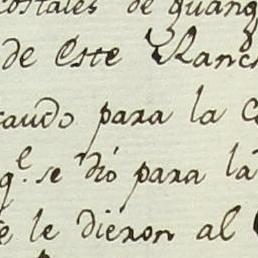 costales de guang
de Este Ranc
caudo para la C
q.e se dió para la
e le dieron al